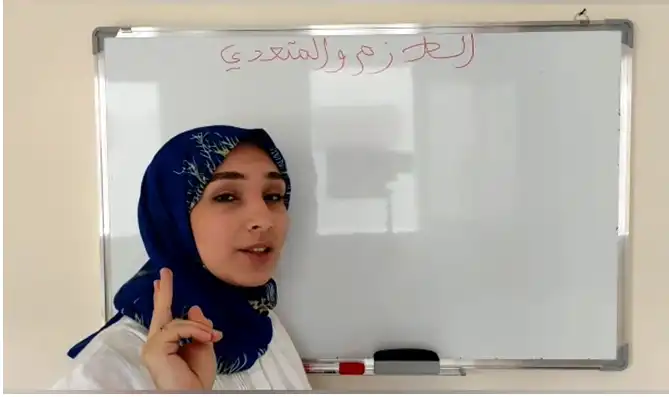 اللازم والمتعدي